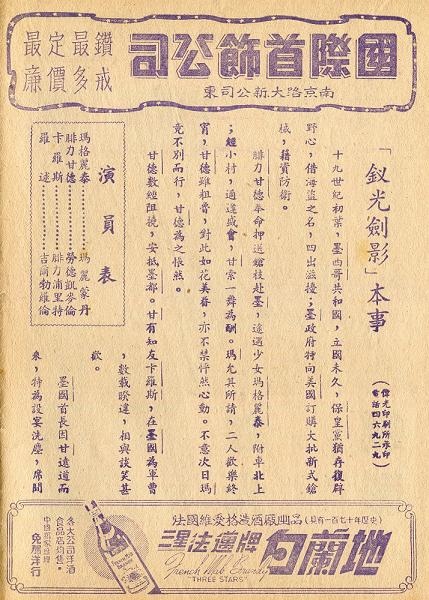 國際首飾公司
南京路大新公司東
鑽戒
最多
定價
最廉
「釵光劍影」本事
(偉光印刷所承印
電話四六九二九)
十九世紀初葉,墨西哥共和國,立國未久,保皇黨猶存復辟
野心,借海盜之名,四出滋擾;墨政府特向美國訂購大批新式鎗
械,藉資防衛。
腓力甘德奉命押送鎗枝赴墨,途遇少女瑪格麗泰,附車北上
;經小村,適逢盛會,甘索一舞為酬。瑪允其所請,二人歡樂終
宵,甘德雖粗魯,對此如花美眷,亦不禁怦然心動。不意次日瑪
竟不別而行,甘德為之悵然。
甘德數經阻撓,安抵墨都。甘有知友卡羅斯,在墨國為軍曹
,數載睽違,相與談笑甚
歡。
墨國首長因甘遠道而
來,特為設宴洗塵,席間
演員表
瑪格麗泰⋯⋯瑪麗蒙丹
腓力甘德⋯⋯勞德凱麥倫
卡羅斯⋯⋯腓力浦里特
羅述⋯⋯吉爾勃維倫
(具有一百七十年歷史)法國維愛格造酒廠出品
三星法國牌白蘭地
French Brandy
"THREE STARS"
各大公司洋酒
食品店均售。
中國獨家經理
洋行